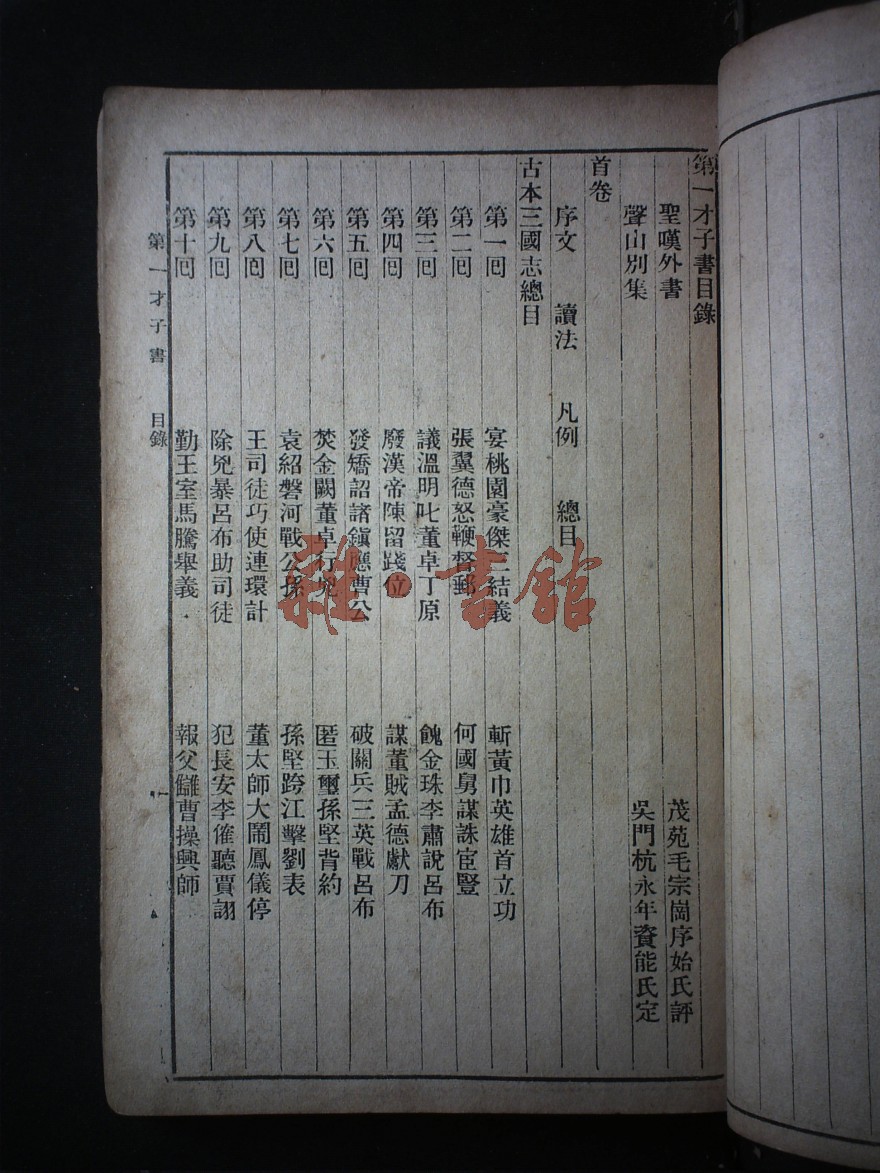 第一才子書目錄
聖嘆外書 茂苑毛宗崗序始氏評
聲山別集 吳門杭永年資能氏定
首卷
序文 讀法 凡例 總目
古本三國志總目
第一回 宴桃園豪傑三結義 斬黃巾英雄首立功
第二回 張翼德怒鞭督郵 何國舅謀誅宦豎
第三回 議溫明叱董卓丁原 餽金珠李肅說呂布
第四回 廢漢帝陳留踐位 謀董賊孟德獻刀
第五回 發矯詔諸鎮應曹公 破關兵三英戰呂布
第六回 焚金闕董卓行兇 匿玉璽孫堅背約
第七回 袁紹磐河戰公孫 孫堅跨江擊劉表
第八回 王司徒巧使連環計 董太師大鬧鳳儀停
第九回 除兇暴呂布助司徒 犯長安李傕聽賈詡
第十回 勤王室馬騰舉義 報父讎曹操興師
第一才子書 目錄 一
雜·書館